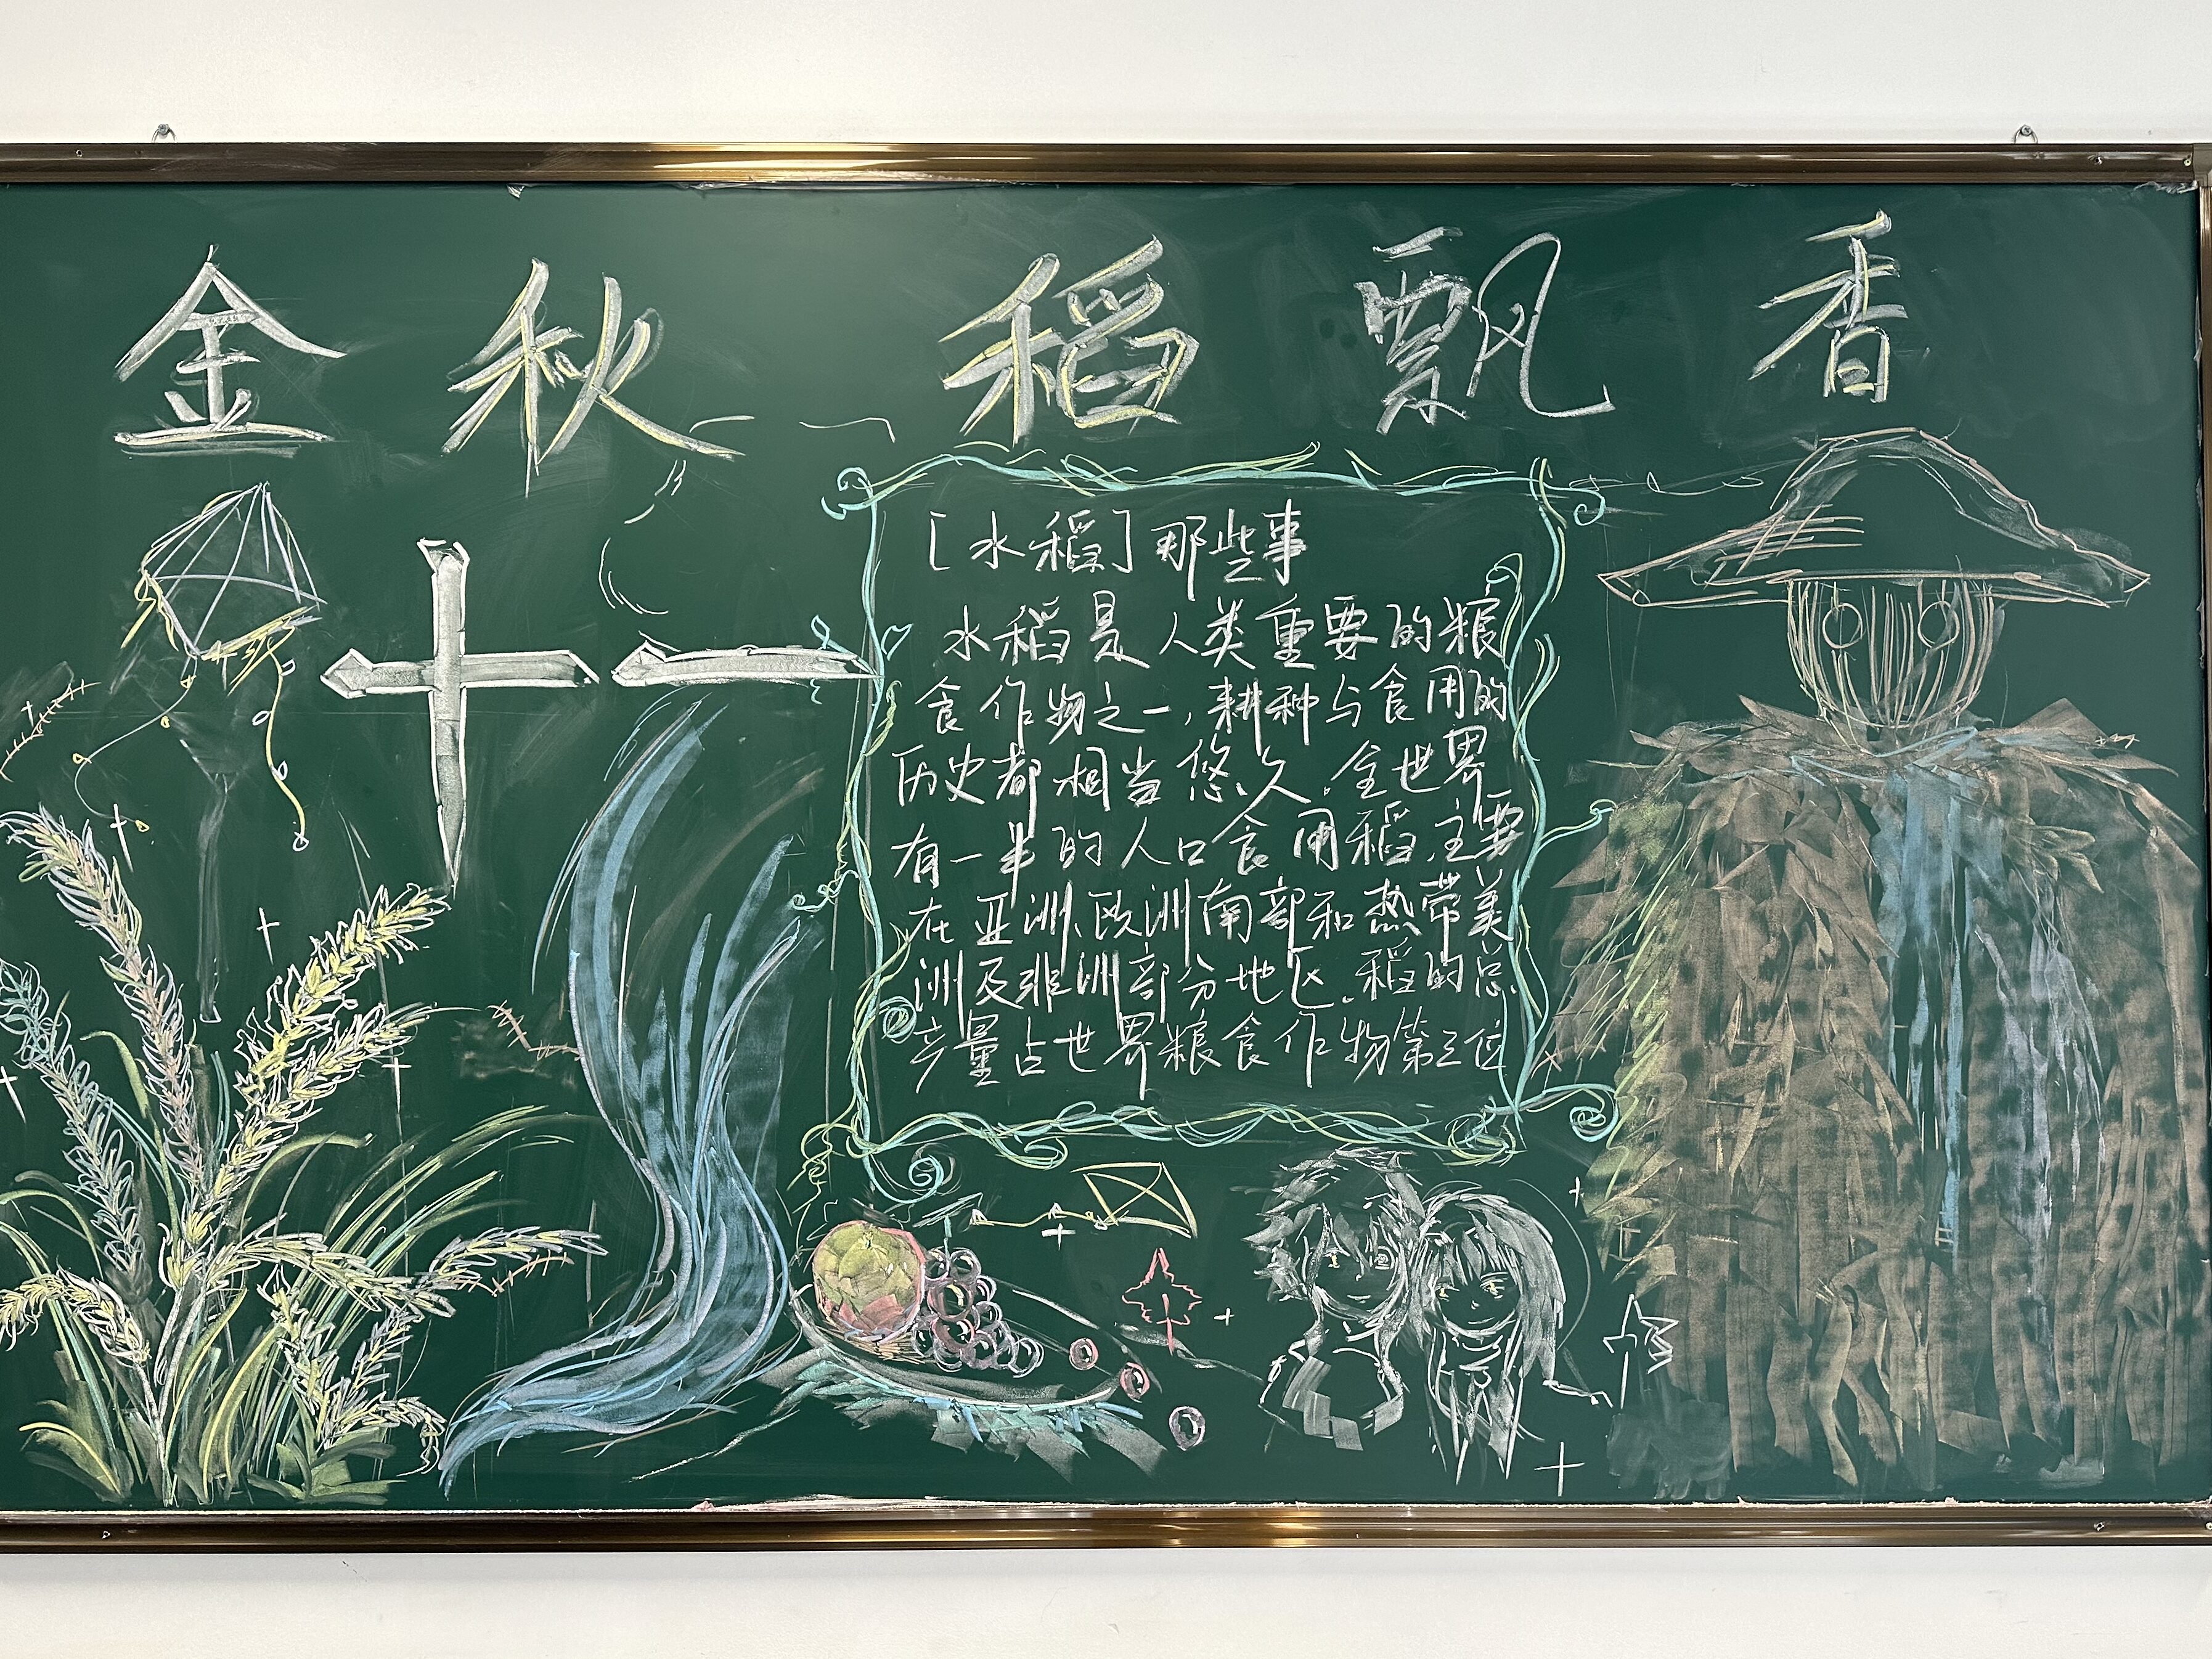 金秋 稻飘香
十一
[水稻]那些事
水稻是人类重要的粮
食作物之一,耕种与食用的
历史都相当悠久.全世界
有一半的人口食用稻.主要
在亚洲、欧洲南部和热带美
洲及非洲部分地区.稻的总
产量占世界粮食作物第三位